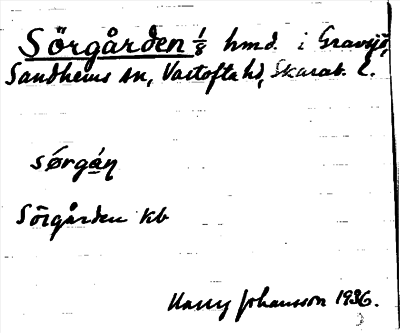 Sörgården 1/8 hmd. i Gravsjö,
Sandhems sn, Vartofta hd, Skarab. l.
sǿrgáṇ
Sörgården kb
Harry Johansson 1936.